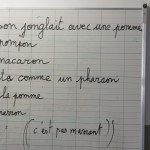 son jonglait avec une pomme
pompon
macaron
comme un
la pomme
((c'est pas marrant))